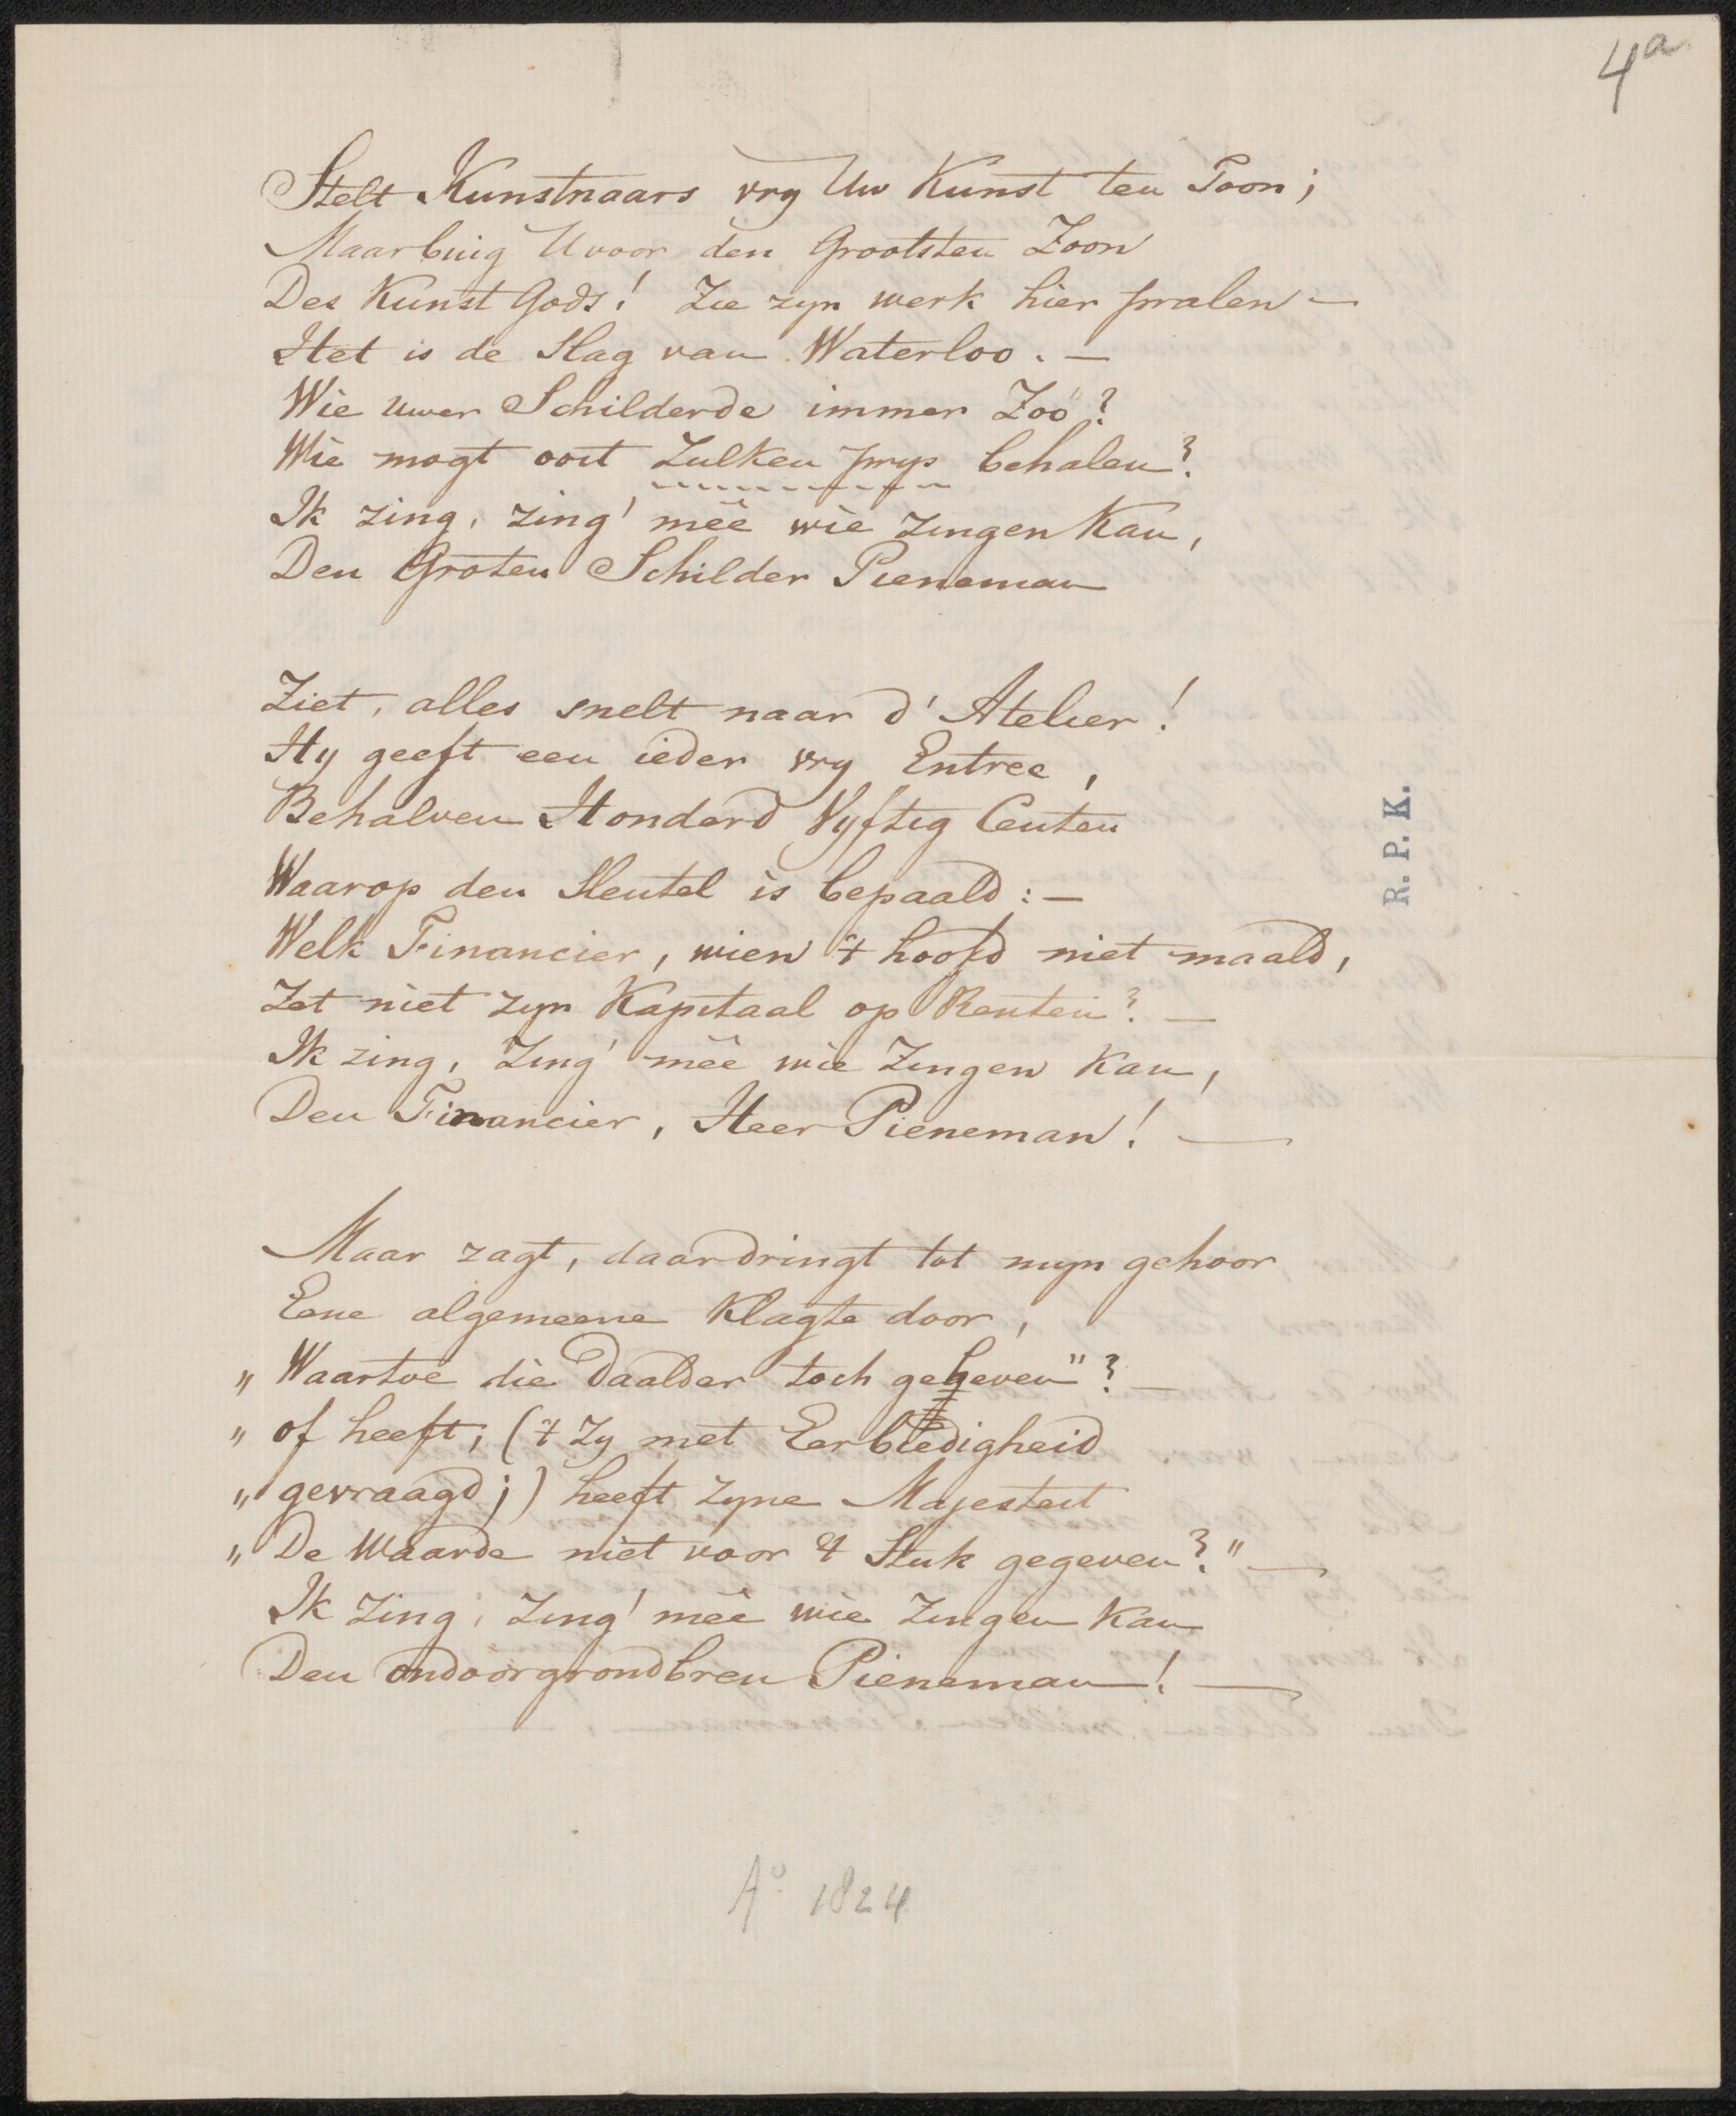 4a
Stelt Kunstnaars vry Uw Kunst ten Toon;
Maar buig U voor den Grootsten Zoon
Des Kunst Gods! Zie zyn werk hier pralen —
Het is de Slag van Waterloo. —
Wie uwer Schilderde immer Zoo?
Wie mogt ooit Zulken prys behalen?
Ik zing, zing' meê wie zingen Kan,
Den Groten Schilder Pieneman
Ziet, alles snelt naar d' Atelier!
Hy geeft een ieder vry Entree,
Behalven Honderd Vyftig Centen
Waarop den Sleutel is bepaald: —
Welk Financier, wien 't hoofd niet maald,
Zet niet zyn Kapitaal op Renten? —
Ik zing, Zing' meê wie Zingen Kan,
Den Financier, Heer Pieneman! —
R. P. K.
Maar zagt, daar dringt tot myn gehoor
Eene algemeene Klagte door,
„ Waartoe die Daalder toch geheven"? —
„ of heeft, ('t Zy met Eerbiedigheid
„ gevraagd;) heeft zyne Majesteit
„ De Waarde niet voor 't Stuk gegeven?" —
Ik Zing, Zing' meê wie Zingen Kan
Den ondoorgrondbren Pieneman! —
Ao 1824